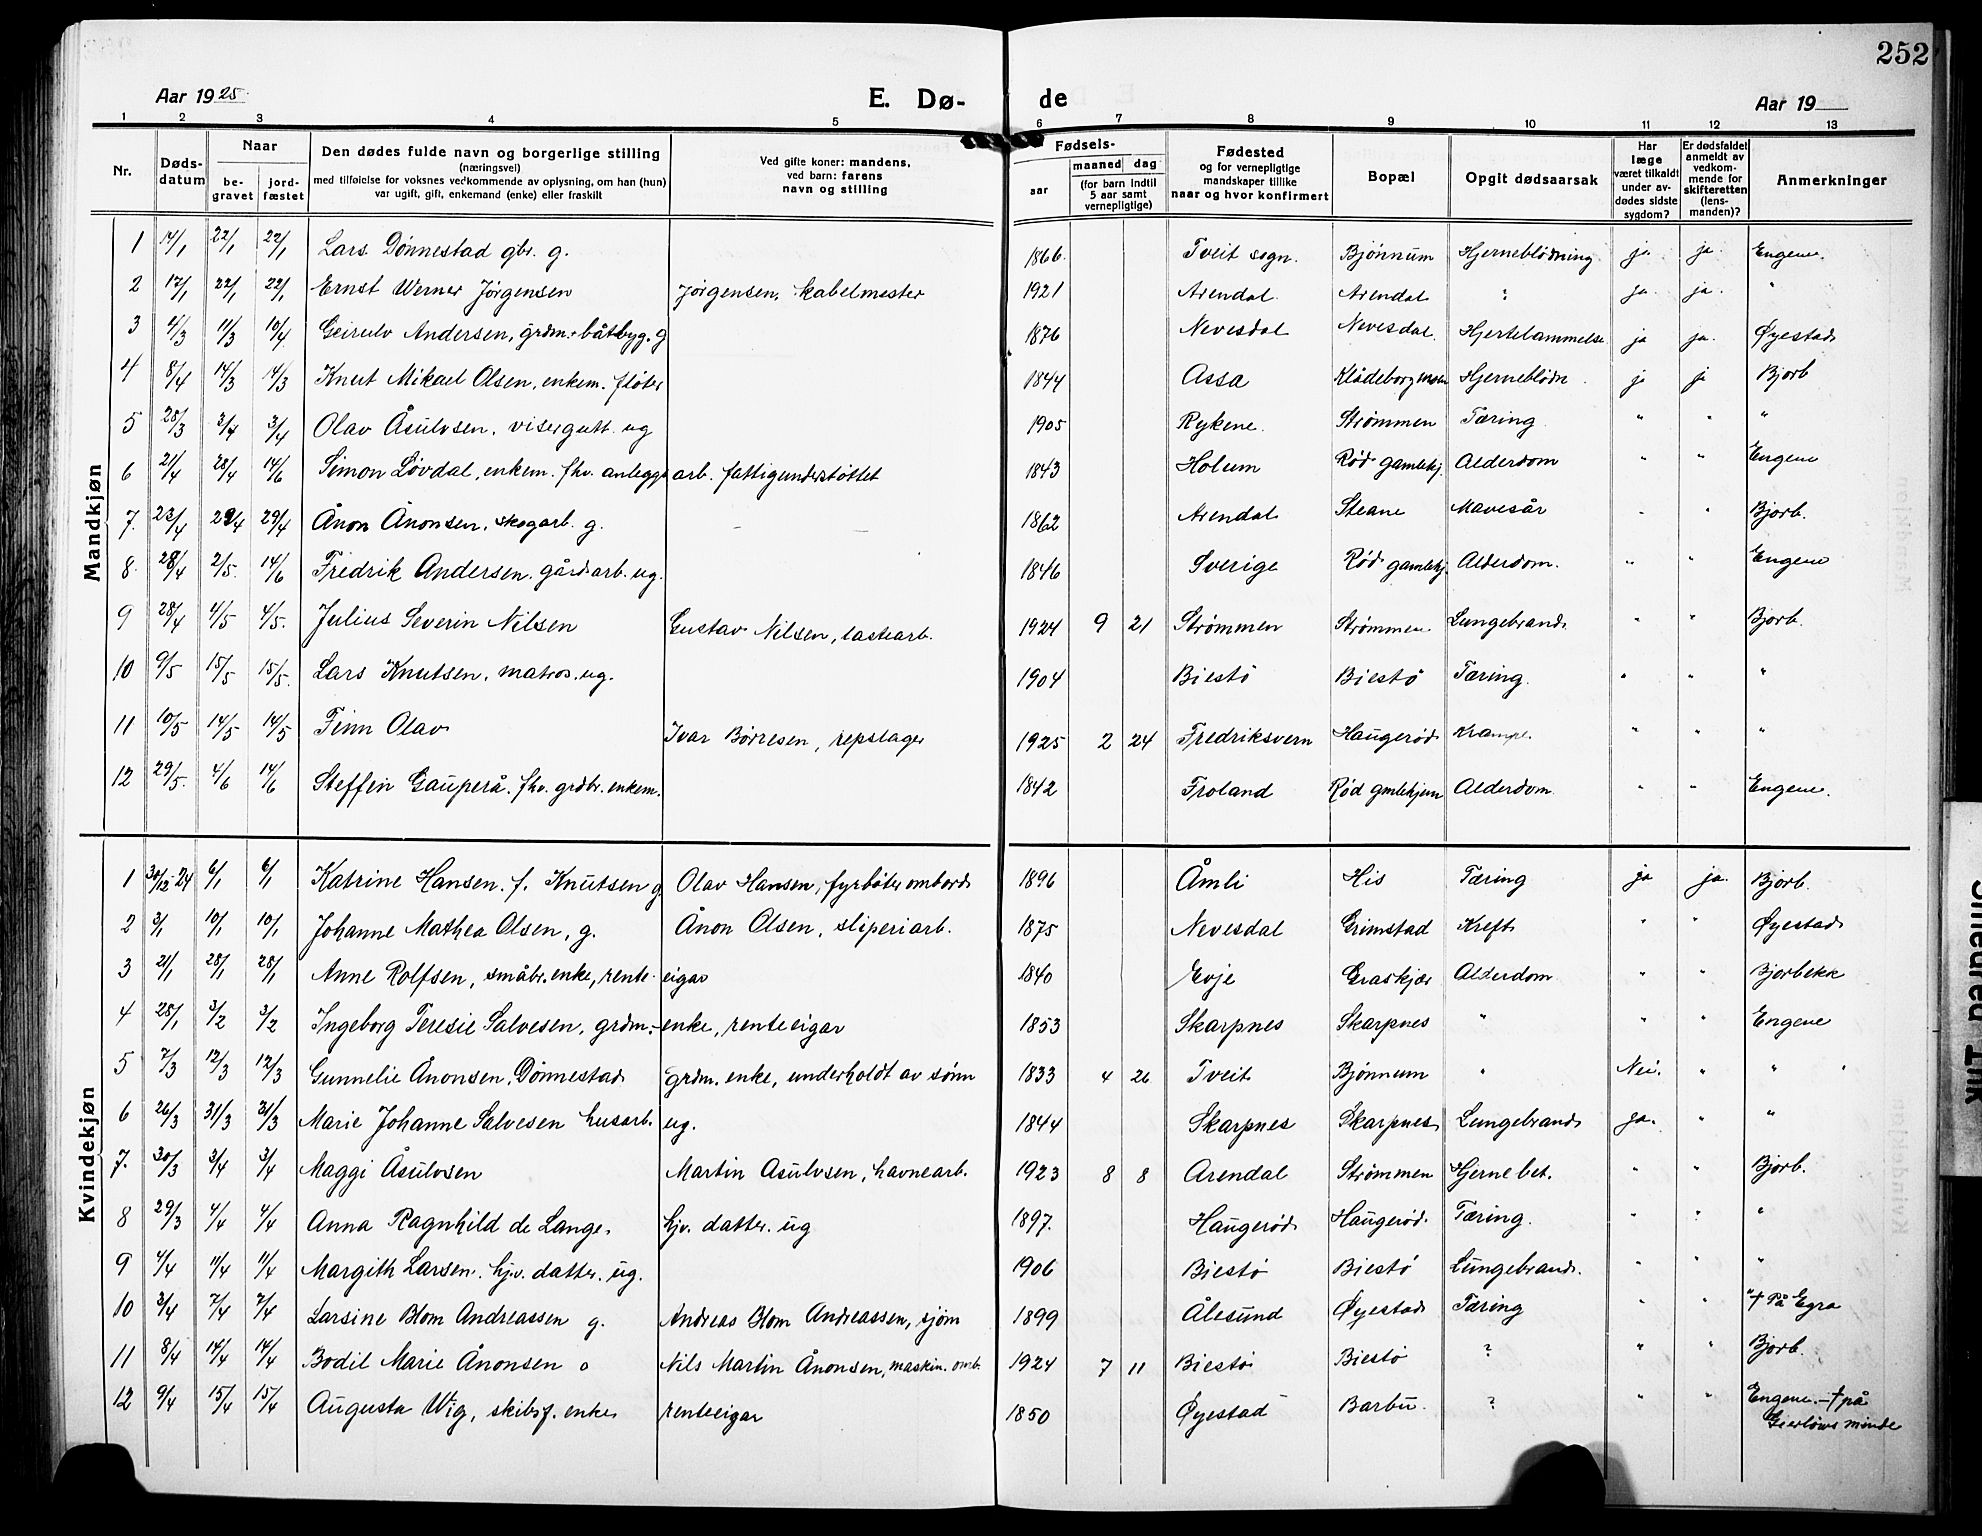 252
Aar 1925. E. Dø- de Aar 19
1 2 3 4 5 6 7 8 9 10 11 12 13
Nr.
Døds-datum
Naar
be-gravet
jord-fæstet
Den dødes fulde navn og borgerlige stilling
(næringsvei)
med tilføielse for voksnes vedkommende av oplysning, om han (hun)
var ugift, gift, enkemand (enke) eller fraskilt
Ved gifte koner: mandens,
ved barn: farens
navn og stilling
Fødsels-
aar
maaned dag
(for barn indtil
5 aar samt
vernepligtige)
Fødested
og for vernepligtige
mandskaper tillike
naar og hvor konfirmert
Bopæl
Opgit dødsaarsak
Har
læge
været tilkaldt
under av-
dødes sidste
sygdom?
Er dødsfaldet
anmeldt av
vedkom-
mende for
skifteretten
(lens-
manden)?
Anmerkninger
Mandkjøn
1 14/1 22/1 22/1 Lars Dønnestad gbr. g. 1866. Tveit sogn. Bjønnum Hjerneblødning ja ja. Engene.
2 17/1 22/1 22/1 Ernst Werner Jørgensen Jørgensen, kabelmester 1921 Arendal. Arendal ? ja. ja. "
3 4/3 11/3 10/4 Geirulv Andersen, grdm. + båtbyg. g 1876 Nevesdal Nevesdal. Hjertelammelse ja ja. Øyestad
4 8/4 14/3 14/3 Knut Mikael Olsen, enkem. fløter 1844 Assa Klådeborgmoen Hjerneblødn. ja ja Bjorb
5 28/3 3/4 3/4 Olav Åsulvsen, visergutt. ug 1905 Rykene. Strømmen Tæring " " "
6 21/4 28/4 14/6 Simon Løvdal, enkem. fhv. anleggsarb. fattigunderstøttet 1843 Holum Rød gamlehj. Alderdom " " Engene
7. 23/4 29/4 29/4 Ånon Ånonsen, skogarb. g. 1862 Arendal Steane Mavesår " " Bjorb.
8. 28/4 2/5. 14/6 Fredrik Andersen. gårdsarb. ug. 1846 Sverige Rød gamlehj. Alderdom. " " Engene
9 28/4 4/5 4/5. Julius Severin Nilsen Gustav Nilsen, lastearb. 1924 9 21 Strømmen Strømmen Lungebrand. " " Bjorb.
10 9/5 15/5 15/5. Lars Knutsen, matros. ug. 1904 Biestø Biestø Tæring. " " "
11 10/5 14/5 14/5 Finn Olav Ivar Børresen, repslager 1925 2 24 Fredriksvern Haugerød Krampe. " " "
12 29/5. 4/6 14/6 Steffen Gauperå. fhv. grdbr. enkem. 1842 Froland Rød gmlehjem Alderdom " " Engene.
Kvindekjøn
1 30/12-24 6/1 6/1 Katrine Hansen. f. Knutsen g. Olav Hansen, fyrbøter ombord 1896 Åmli His Tæring ja ja. Bjorb.
2 3/1 10/1 10/1 Johanne Mathea Olsen, g. Ånon Olsen, sliperiarb. 1875 Nevesdal Grimstad Kreft " " Øyestad
3 21/1 28/1 28/1 Anne Rolfsen, småbr. enke, rente-eigar 1840 Evje Graskjær Alderdom " " Bjorbekk
4 28/1 3/2 3/2 Ingeborg Teresie Salvesen, grdm.-enke, renteeigar 1853 Skarpnes Skarpnes " " " Engene
5 7/3 12/3 12/3 Gunnelie Ånonsen, Dønnestad grdm. enke, underholdt av sønn 1833 4 26 Tveit Bjønnum " Nei. " "
6 26/3 31/3 31/3 Marie Johanne Salvesen husarb. ug. 1844 Skarpnes Skarpnes Lungebrand ja. " "
7. 30/3 3/4 3/4 Maggi Åsulvsen Martin Asulvsen, havnearb. 1923 8 8 Arendal Strømmen Hjernebet. " " Bjorb.
8 29/3 4/4 4/4 Anna Ragnhild de Lange. hjv. datter. ug 1897. Haugerød Haugerød. Tæring. " " "
9 4/4 11/4 11/4 Margith Larsen. hjv. datter. ug. 1906 Biestø Biestø Lungebrand. " " "
10 3/4 7/4 7/4 Larsine Blom Andreassen g. Andreas Blom Andreassen, sjøm 1899 Ålesund Øyestad Tæring " " " † På Egra
11 8/4 14/4 14/4 Bodil Marie Ånonsen Nils Martin Ånonsen, maskin. omb. 1924 7 11 Biestø Biestø ? " " Bjorb.
12 9/4 15/4 15/4 Augusta Wig, skibsf. enke renteeigar 1850 Øyestad Barbu. ? " " Engene. - † på
Gierløws minde